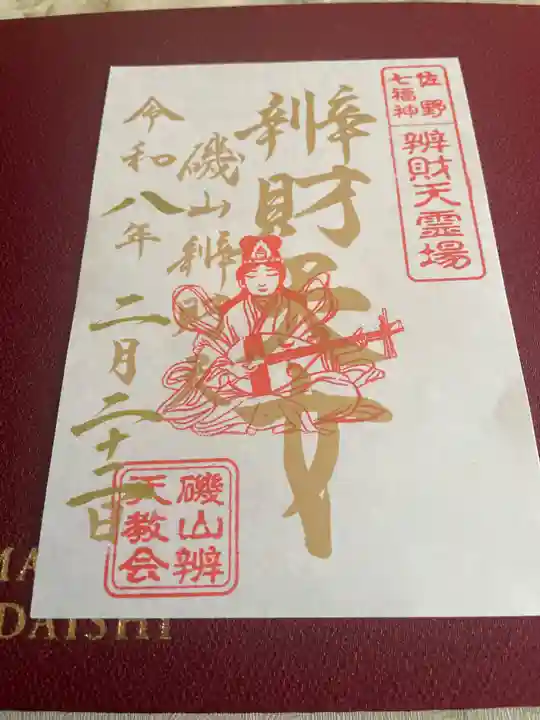 佐野
七福神
辨財天霊場
辨財天
磯山辨財天
令和八年
二月二十二日
磯山辨
天教会
MA
DAISHI